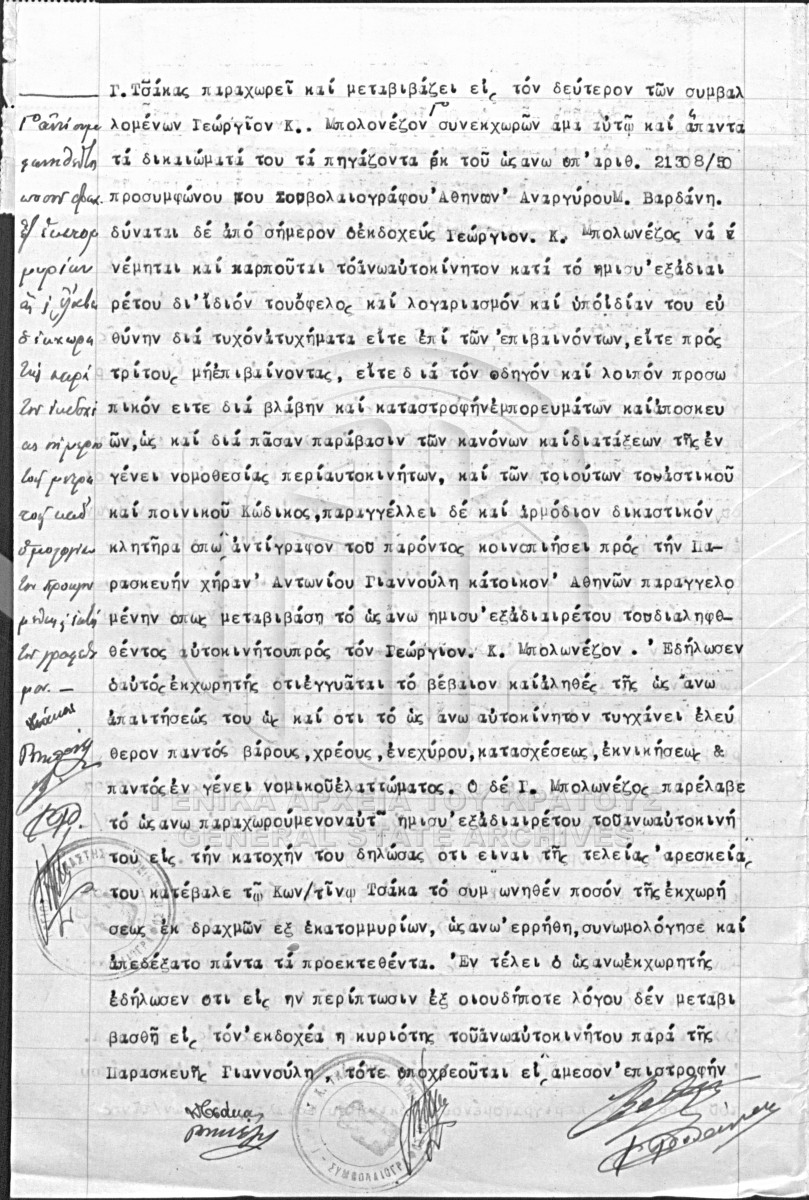 Γ. Τσάκας παραχωρεῖ καί μεταβιβάζει εἰς τόν δεύτερον τῶν συμβαλ
λομένων Γεώργιον Κ.. Μπολονέζον Γ συνεκχωρῶν ἅμα αὐτῷ καί ἅπαντα
τά δικαιώματά του τά πηγάζοντα ἐκ τοῦ ὡς ανω ὑπ' ἀριθ. 21308/50
προσυμφώνου του Συμβολαιογράφου 'Αθηνῶν 'Αναργύρου Μ. Βαρδάνη.
δύναται δέ ἀπό σήμερον ὁ ἐκδοχεύς Γεώργιον. Κ. Μπολωνέζος νά έ
νέμηται καί καρποῦται τό ἀνω αὐτοκίνητον κατά τό ημισυ 'εξ ἀδιαι
ρέτου δι' ἴδιόν του ὄφελος καί λογαριασμόν καί ὑπό ἰδίαν του εὐ
θύνην διά τυχόν ἀτυχήματα εἴτε ἐπί τῶν 'επιβαινόντων, εἴτε πρός
τρίτους μή ἐπιβαίνοντας, εἴτε διά τόν ὁδηγόν καί λοιπόν προσω
πικόν ειτε διά βλάβην καί καταστροφήν ἐμπορευμάτων καί ἀποσκευ
ῶν, ὡς καί διά πᾶσαν παράβασιν τῶν κανόνων καί διατάξεων τῆς ἐν
γένει νομοθεσίας περί αυτοκινήτων, καί τῶν τοιούτων τοῦ ἀστικοῦ
καί ποινικοῦ Κώδικος, παραγγέλλει δέ καί ἁρμόδιον δικαστικόν
κλητῆρα ὅπως ἀντίγραφον τοῦ παρόντος κοινοποιήσει πρός τήν Πα-
ρασκευήν χήραν 'Αντωνίου Γιαννούλη κάτοικον 'Αθηνῶν παραγγελο
μένην οπως μεταβιβάση τό ὡς ἀνω ημισυ 'εξ ἀδιαιρέτου τοῦ διαληφθ-
θέντος αὐτοκινήτου πρός τόν Γεώργιον. Κ. Μπολωνέζον. 'Εδήλωσεν
ὁ αὐτός ἐκχωρητής οτι ἐγγυᾶται τό βέβαιον καί ἀληθές τῆς ὡς 'ανω
ἀπαιτήσεώς του ὡς καί οτι τό ὡς ἀνω αὐτοκίνητον τυγχάνει ἐλεύ
θερον παντός βάρους, χρέους, ἐνεχύρου, κατασχέσεως, ἐκνικήσεως &
παντός ἐν γένει νομικοῦ ἐλαττώματος. Ὁ δέ Γ. Μπολωνέζος παρέλαβε
τό ὡς ανω παραχωρούμενον αὐτῷ ημισυ 'εξ ἀδιαιρέτου τοῦ ἀνω αὐτοκινή
του εἰς τήν κατοχήν του δηλώσας οτι ειναι τῆς τελείας 'αρεσκείας
του κατέβαλε τῷ Κων/τίνῳ Τσάκα τό συμ ωνηθέν ποσόν τῆς ἐκχωρή
σεως ἐκ δραχμῶν εξ ἑκατομμυρίων, ὡς ανω 'ερρήθη, συνωμολόγησε καί
ἀπεδέξατο πάντα τά προεκτεθέντα. 'Εν τέλει ὁ ὡς ανω ἐκχωρητής
ἐδήλωσεν οτι εἰς ην περίπτωσιν ἐξ οιουδήποτε λόγου δέν μεταβι
βασθῆ εἰς τόν 'εκδοχέα η κυριότης τοῦ ἀνω αὐτοκινήτου παρά τῆς
Παρασκευῆς Γιαννούλη, τότε ὑποχρεοῦται εἰς ἄμεσον 'επιστροφήν
Γ ἀντί συμ
φωνηθέντος
ποσοῦ δραχ.
ἕξ ἑκατομ
μυρίων
ΓΕΝΙΚΑ ΑΡΧΕΙΑ ΤΟΥ ΚΡΑΤΟΥΣ
GENERAL STATE ARCHIVES